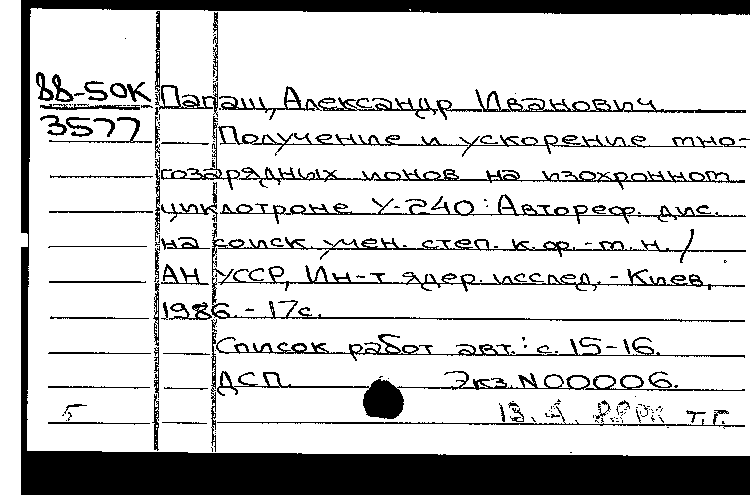 88-50К Папаш, Александр Иванович.
3577 Получение и ускорение мно-
гозарядных ионов на изохронном
циклотроне У-240: Автореф. дис.
на соиск. учен. степ. к. ф.-м. н. /
АН УССР, Ин-т ядер. исслед. - Киев,
1986. - 17с.
Список работ авт.: с. 15-16.
ДСП. Экз. N00006.
Б 13. 4. 88 РК т.г.